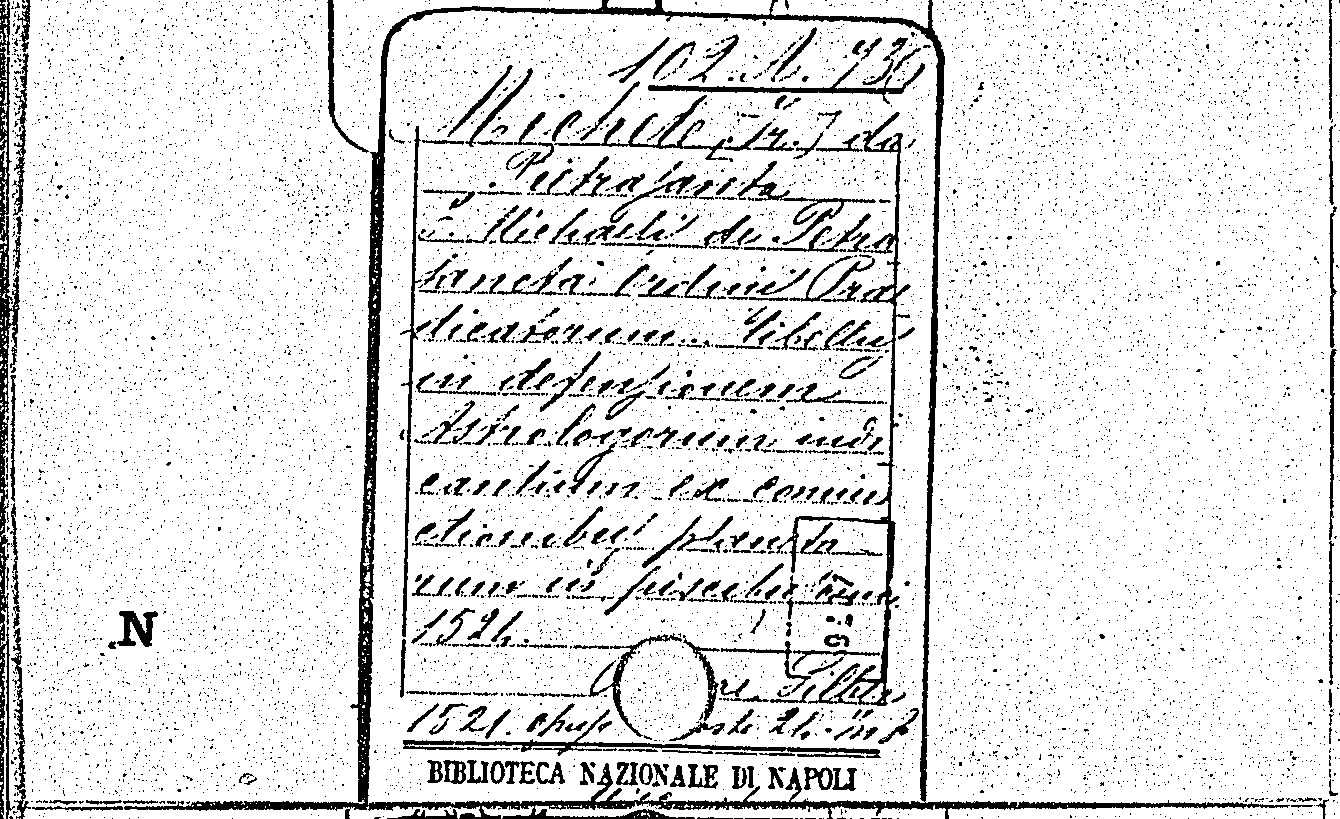 102. A. 736
Michele [fr.] da
Pietrasanta
F. Michaelis de Petra
sancta Ordinis Prae
dicatorum.. libellus
in defensionem
Astrologorum iudi
cantium ex coniun
ctionibus planeta
rum in piscibus
1521.
Silber
1521.
BIBLIOTECA NAZIONALE DI NAPOLI
N